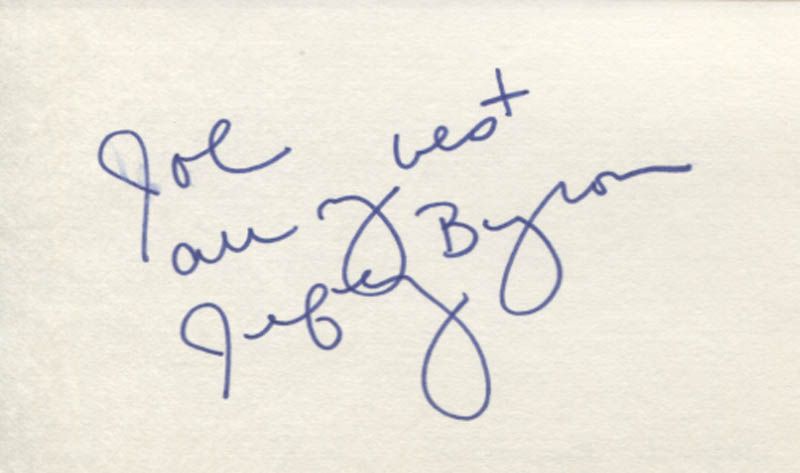 Joe
all my best
Jeffrey Byron